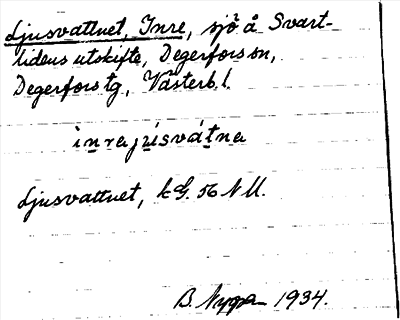 Ljusvattnet, Inre, sjö å Svart-
lidens utskifte, Degerfors sn,
Degerfors tg, Västerb. l.
inrajusvátna
Ljusvattnet, kG. 56 NU.
B. 1934.